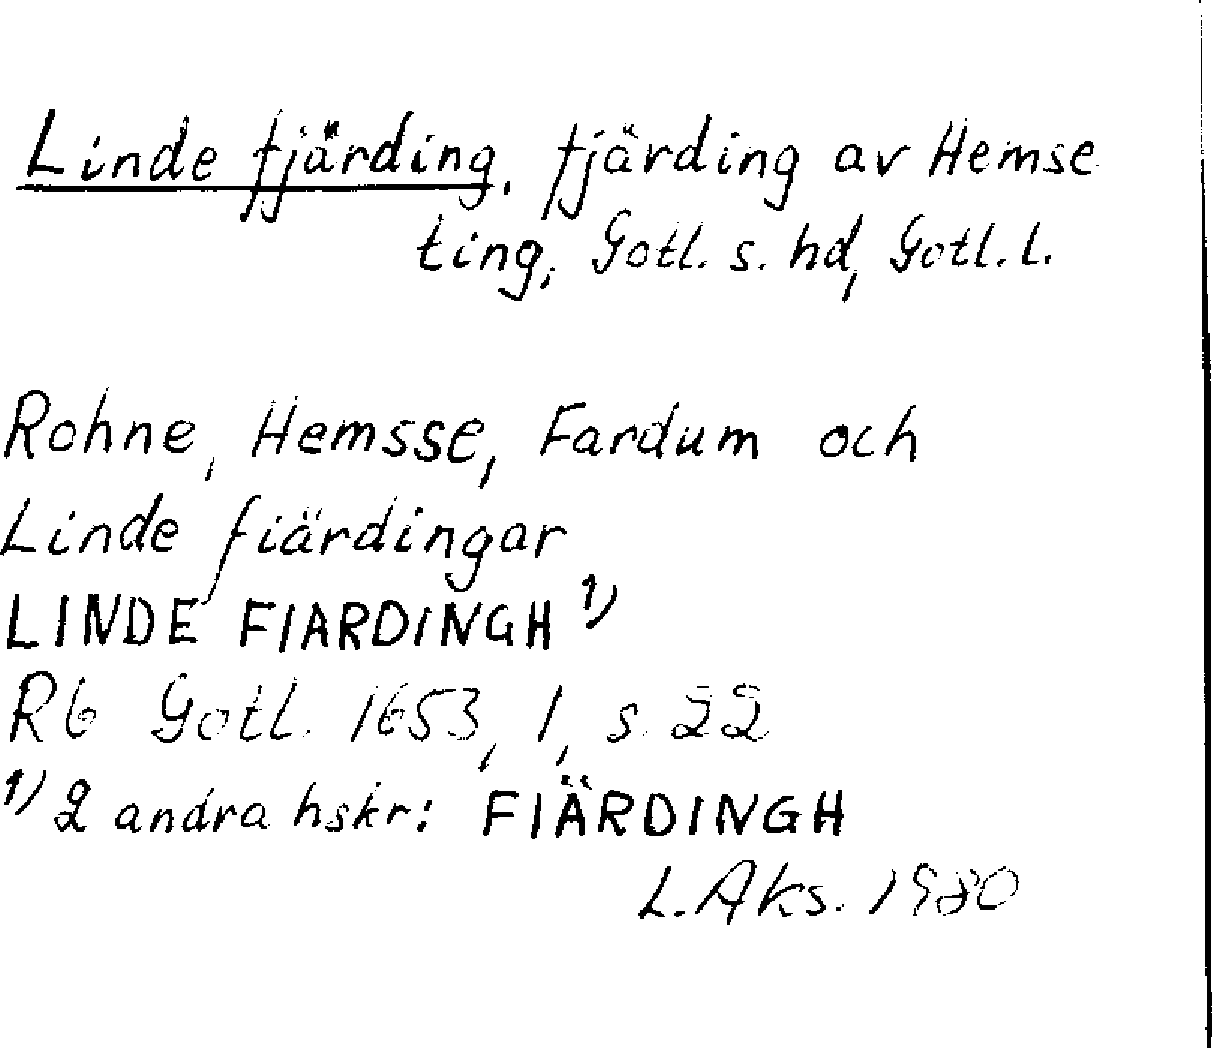 Linde fjärding. fjärding av Hemse
ting, Gotl. s. hd, Gotl. l.
Rohne, Hemsse, Fardum och
Linde fiärdingar
LINDE FIARDINGH 1)
Rb Gotl. 1653, 1, s. 22
1) 2 andra hskr: FIÄRDINGH
L. Aks. 1980